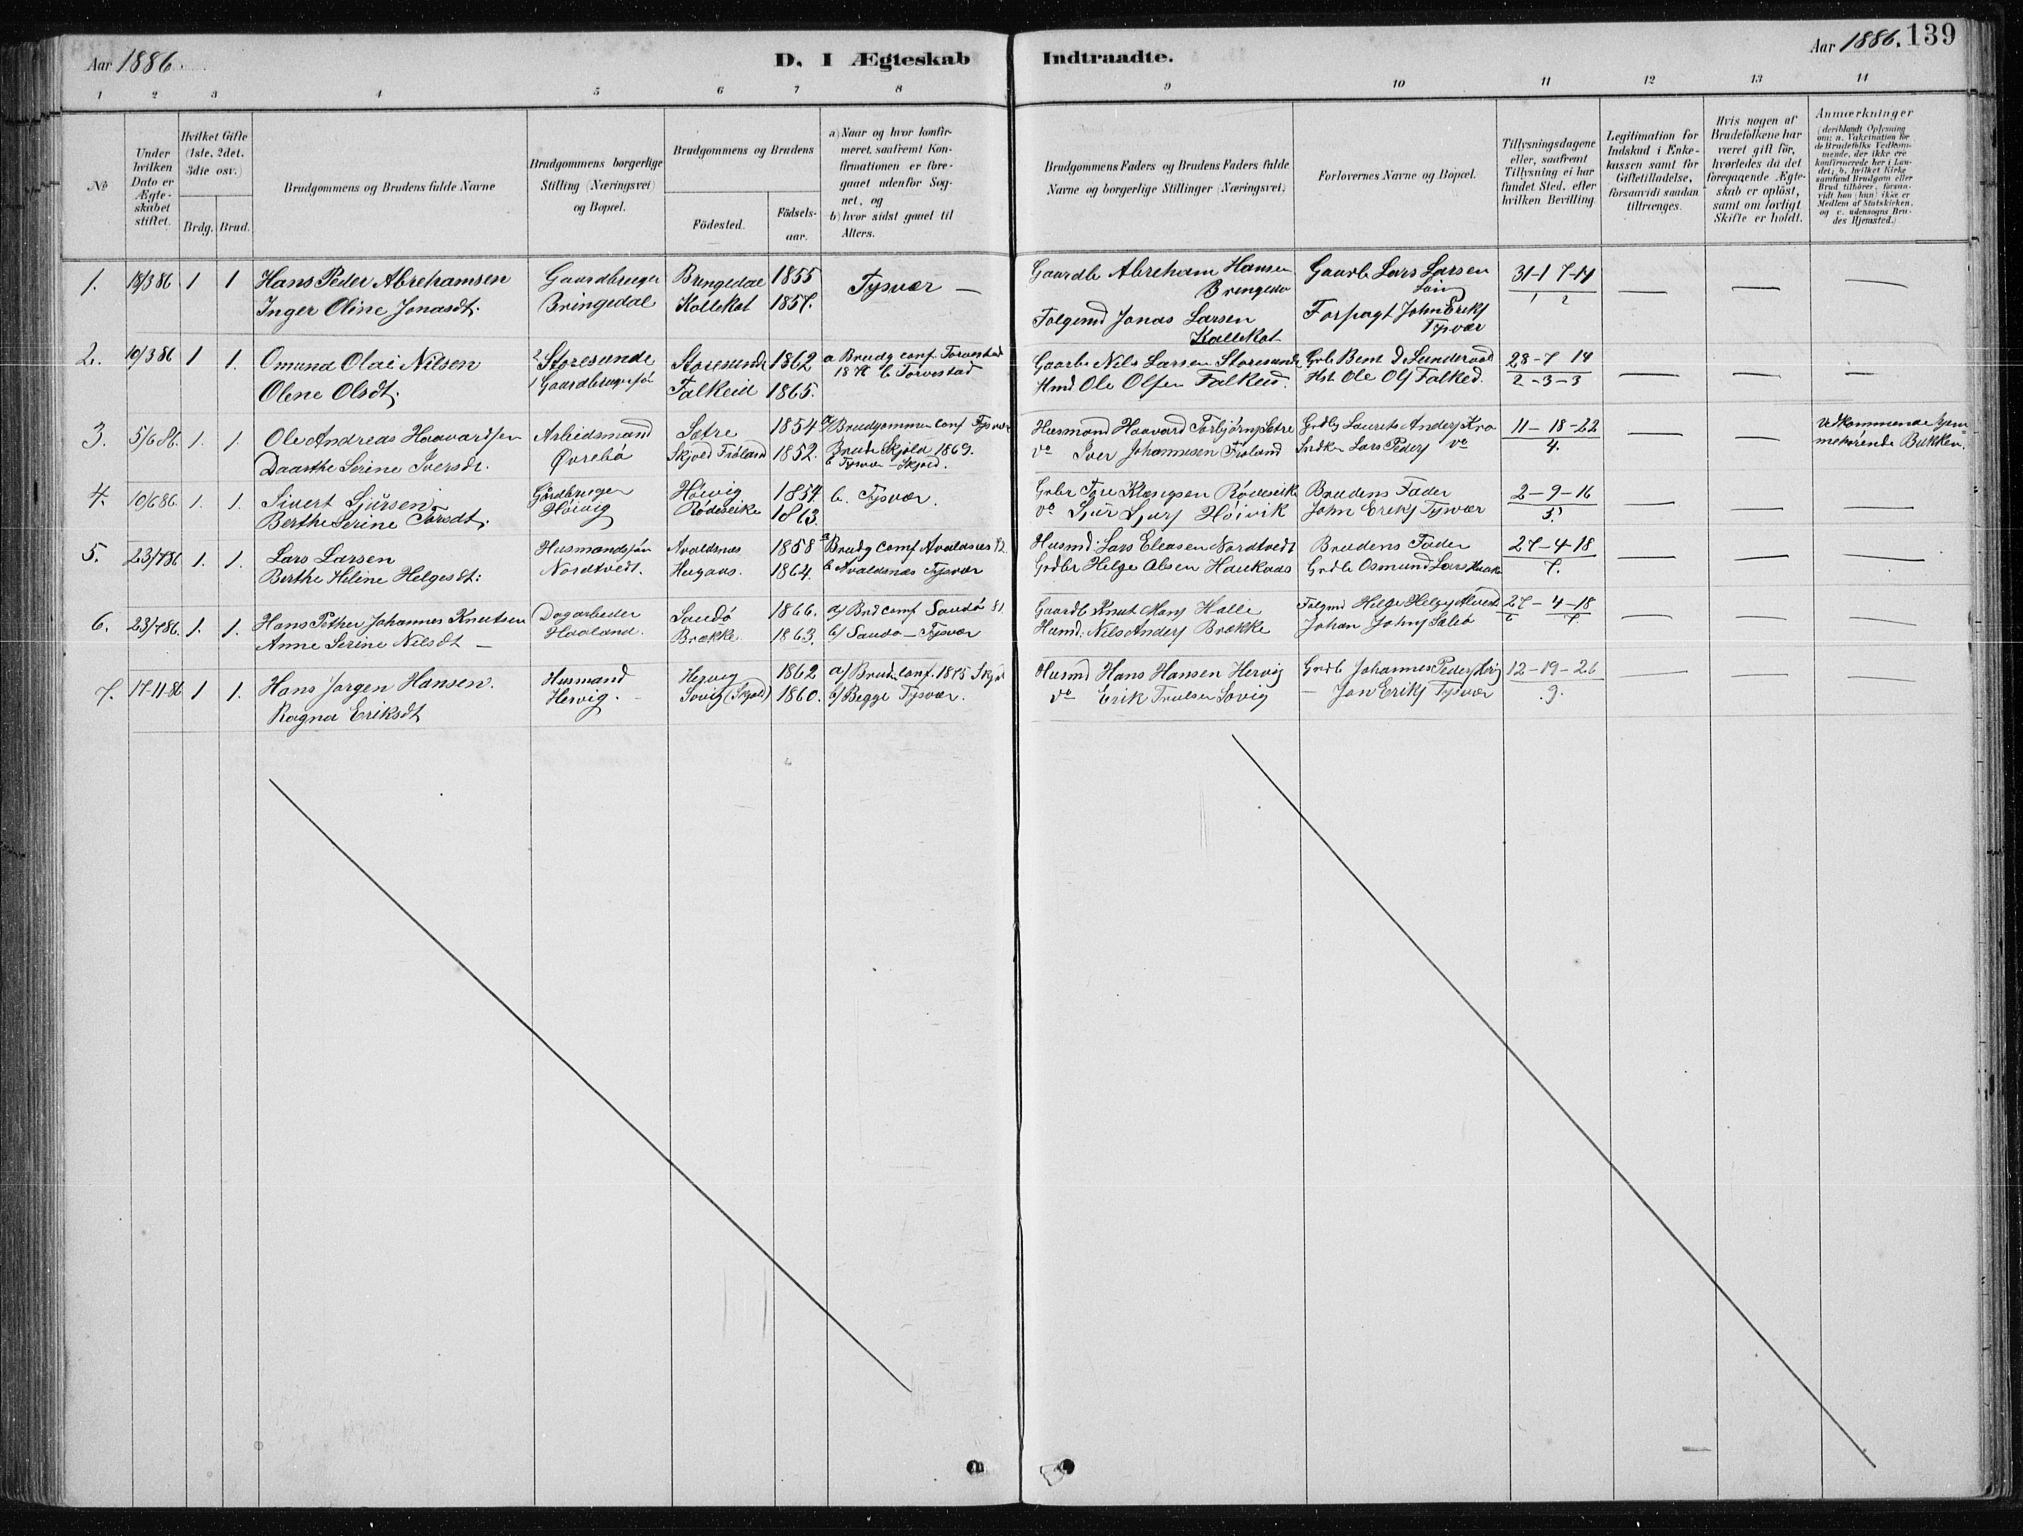 Aar 1886.
D. I Ægteskab Indtraadte.
Aar 1886. 139
1 2 3 4 5 6 7 8 9 10 11 12 13 14
No
Under hvilken Dato er Ægteskabet stiftet.
Hvilket Gifte (1ste, 2det, 3die osv.)
Brdg. Brud.
Brudgommens og Brudens fulde Navne
Brudgommens borgerlige Stilling (Næringsvei) og Bopæl.
Brudgommens og Brudens
Födested.
Födselsaar.
a) Naar og hvor konfirmeret, saafremt Konfirmationen er foregaaet udenfor Sognet, og
b) hvor sidst gaaet til Alters.
Brudgommens Faders og Brudens Faders fulde Navne og borgerlige Stillinger (Næringsvei.)
Forlovernes Navne og Bopæl.
Tillysningsdagene eller, saafremt Tillysning ei har fundet Sted, efter hvilken Bevilling.
Legitimation for Indskud i Enkekassen samt for Giftetilladelse, forsaavidt saadan tiltrænges.
Hvis nogen af Brudefolkene har været gift för, hvorledes da det foregaaende Ægteskab er oplöst, samt om lovligt Skifte er holdt.
Anmærkninger
(deriblandt Oplysning om: a. Vakcination for de Brudefolks Vedkommende, der ikke ere konfirmerede her i Landet; b. hvilket Kirkesamfund Brudgom eller Brud tilhörer, forsaavidt han (hun) ikke er Medlem af Statskirken, og c. udensogns Brudes Hjemsted.)
1. 18/3 86 1 1 Hans Peder Abrehamsen Gaardbruger Bringedal 1855 Tysvær — Gaardb Abreham Hansen Gaarb Lars Larsen 31-1 7-14
Inger Oline Jonasdt. Bringedal Kallekot 1857. Jonas Larsen Kallekot Forpagt John Eriks Tysvær 1 2
2. 10/3 86 1 1. Omund Olai Nilsen Storesunde Storesund 1862 a Brudg conf Torvestad Gaarb Nils Larsen Storesund 28-7 14
Olene Olsdt. Gaardbrugersøn Falkeid 1865. b Torvestad Hmd Ole Olsen Falkeid Ole Ols Falkeid. 2-3-3
3. 5/6 86. 1. 1. Ole Andreas Haavardsen Arbeidsmand Sætre 1854 a Brudgommen conf Tysvær Husmand Haavard Torbjørns Sætre Laurits Anders 11-18-22 Vedkommende hjem-
Daarthe Serine Iversdt. Øvrebø Skjold Frøland 1852. Brude Skjold 1869. b Tysvær – Skjold. do Iver Johannesen Frøland Lars Peders do 4. mehørende Bukken.
4. 10/6 86. 1. 1. Sivert Sjursen Gårdbruger Høivig 1854 b. Tysvær. 2-9-16
Berthe Serine Torsdt. Høivig Rødeseike 1863. do Sjur Sjurs Høivik John Eriks Tysvær 5.
Brudens Fader
5. 23/7 86 1. 1. Lars Larsen Husmandssøn Avaldsnes 1858 a Brudg conf Avaldsnes Husmd. Lars Eleasen Nordtvedt Brudens Fader 27-4-18
Berthe Helene Helgesdt: Nordtvedt. Haugaas. 1864. b Avaldsnes Tysvær Grdbr Helge Olsen Haukaas Grdb Osmund Lars 7.
6. 23/7 86. 1. 1. Hans Pether Johannes Knutsen Dagarbeder Saudø 1866. a/ Brd conf Saudø 81. Gaardb Knut Hans Halle Helge Helges 27-4-18
Anne Serine Nilsdt – Haaland. Brække 1863. b/ Saudø – Tysvær Husmd. Nils Anders Brække Johan Johns 6 7
7. 17-11-86 1 1. Hans Jørgen Hansen. Husmand Hervig 1862 a/ Brud conf. 1875 Skjold Husmd Hans Hansen Hervig Grdb Johannes Peders 12-19-26
Ragna Eriksdt Hervig. Søvig (Skjold) 1860. b/ Begge Tysvær. do Erik Trulsen Søvig – Jon Eriks Tysvær 9.